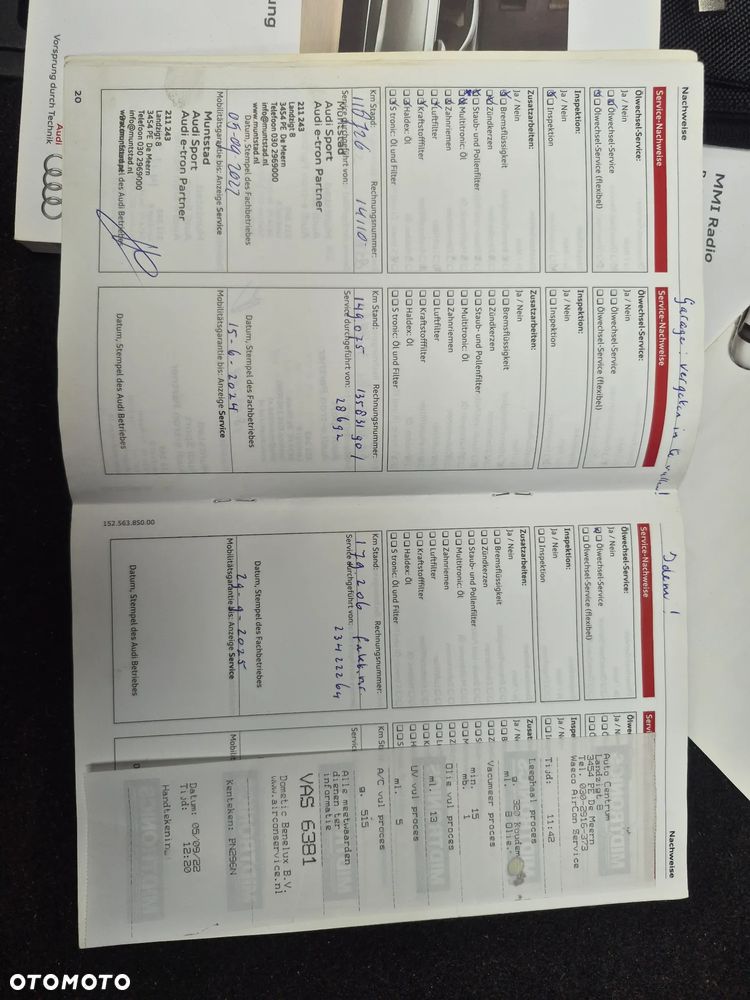 Nachweise
Service-Nachweise
Ölwechsel-Service:
Ja / Nein
Ölwechsel-Service
Ölwechsel-Service (flexibel)
Inspektion:
Ja / Nein
Inspektion
Zusatzarbeiten:
Ja / Nein
Bremsflüssigkeit
Zündkerzen
Staub- und Pollenfilter
Multitronic: Öl
Zahnriemen
Luftfilter
Kraftstofffilter
Haldex: Öl
S tronic: Öl und Filter
Km Stand: Rechnungsnummer:
116726 14110
Service durchgeführt von:
Muntstad
Audi Sport
Audi e-tron Partner
211 243
Landzigt 8
3454 PE De Meern
Telefoon 030 2969000
info@muntstad.nl
www.muntstad.nl
Datum, Stempel des Fachbetriebes
05-09-2022
Mobilitätsgarantie bis: Anzeige Service
Muntstad
Audi Sport
Audi e-tron Partner
211 243
Landzigt 8
3454 PE De Meern
Telefoon 030 2969000
info@muntstad.nl
20
Garage: vergeten in te vullen!
Service-Nachweise
Ölwechsel-Service:
Ja / Nein
Ölwechsel-Service
Ölwechsel-Service (flexibel)
Inspektion:
Ja / Nein
Inspektion
Zusatzarbeiten:
Ja / Nein
Bremsflüssigkeit
Zündkerzen
Staub- und Pollenfilter
Multitronic: Öl
Zahnriemen
Luftfilter
Kraftstofffilter
Haldex: Öl
S tronic: Öl und Filter
Km Stand: Rechnungsnummer:
149.075 13583190/
Service durchgeführt von: 28692
Datum, Stempel des Fachbetriebes
15-6-2024
Mobilitätsgarantie bis: Anzeige Service
Datum, Stempel des Audi Betriebes
Idem!
Service-Nachweise
Ölwechsel-Service:
Ja / Nein
Ölwechsel-Service
Ölwechsel-Service (flexibel)
Inspektion:
Ja / Nein
Inspektion
Zusatzarbeiten:
Ja / Nein
Bremsflüssigkeit
Zündkerzen
Staub- und Pollenfilter
Multitronic: Öl
Zahnriemen
Luftfilter
Kraftstofffilter
Haldex: Öl
S tronic: Öl und Filter
Km Stand: Rechnungsnummer:
179.206 fakt.nr
Service durchgeführt von: 23422264
Datum, Stempel des Fachbetriebes
24-9-2025
Mobilitätsgarantie bis: Anzeige Service
Datum, Stempel des Audi Betriebes
152.563.850.00
Nachweise
Auto Centrum
Landzigt
3454 PE De Meern
Tel. 030-2916-373
Waeco AirCon Service
Tijd: 11:42
Leeghaal proces
g. 320 Koudem
ml. 8 Olie
Vacumeer proces
min. 15
mb. 1
Olie vul proces
ml. 13
UV vul proces
ml. 5
A/C vul proces
g. 515
Alle meetwaarden
dienen ter
informatie
VAS 6381
Dometic Benelux B.V.
www.airconservice.nl
Kenteken: PN296N
Datum: 05/09/22
Tijd: 12:20
Handtekening
MMI Radio
Audi
Vorsprung durch Technik
OTOMOTO